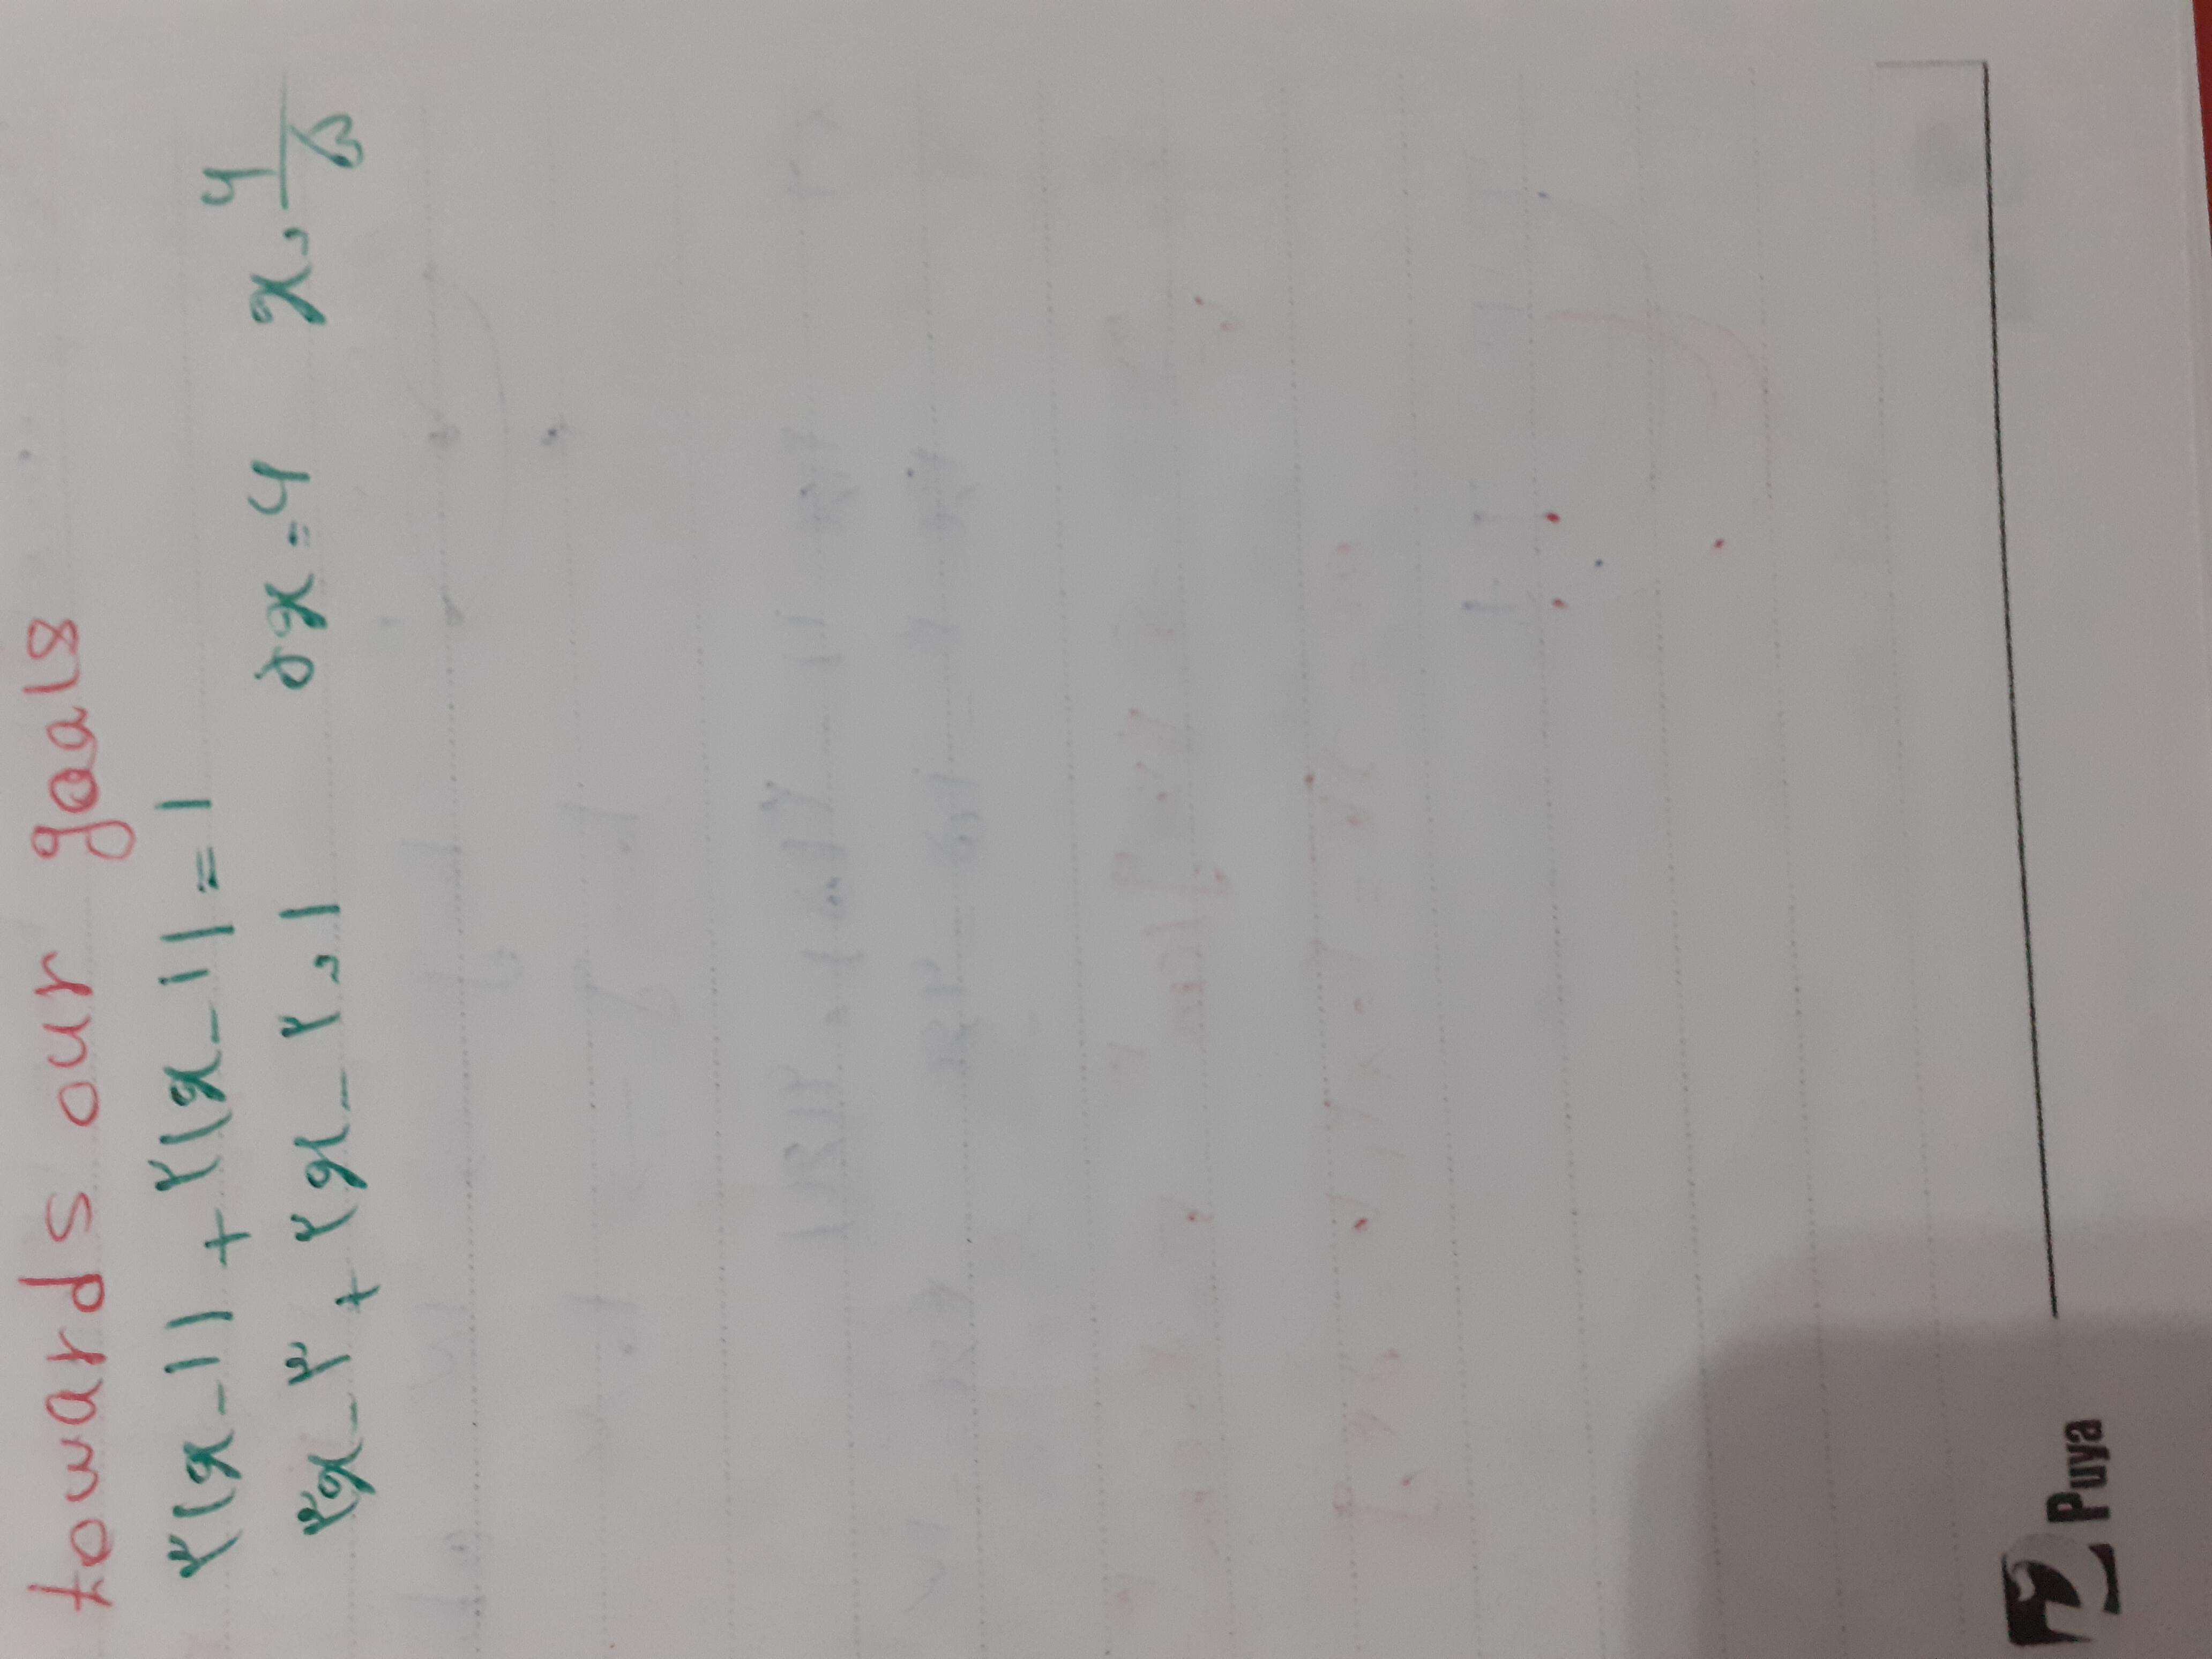 towards our goals
۳(x-۱) + ۲(x-۱) = ۱
۳x - ۳ + ۲x - ۲ = ۱   ۵x = ۶   x = ۶/۵
Puya